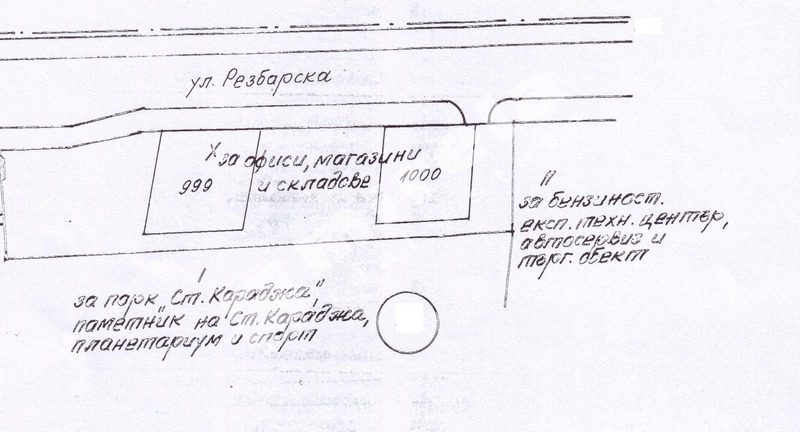 ул. Резбарска
X
за офиси, магазини
и складове
999
1000
II
за бензиност.
експ. техн. център,
автосервиз и
търг. обект
I
за парк „Ст. Караджа“,
паметник на Ст. Караджа,
планетариум и спорт